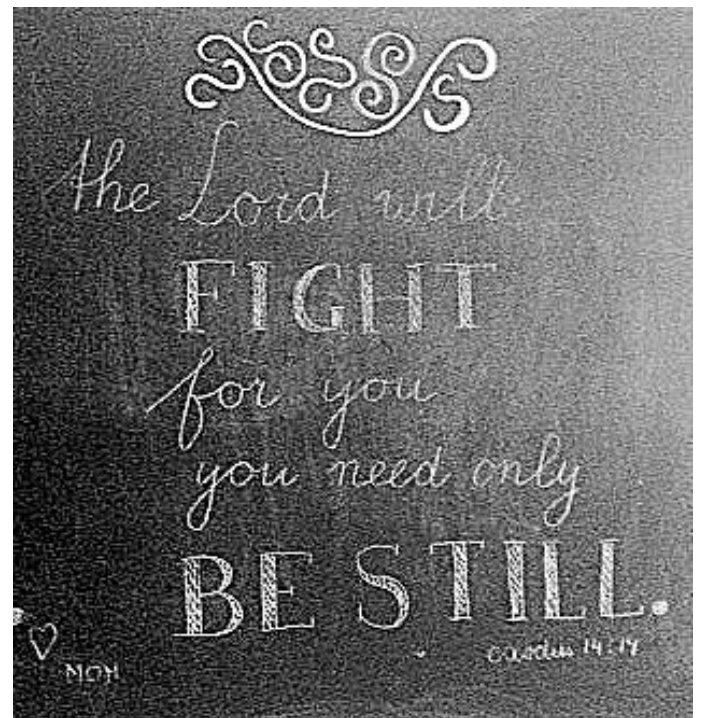 the Lord will
FIGHT
for you
you need only
BE STILL.
exodus 14:14
MOM